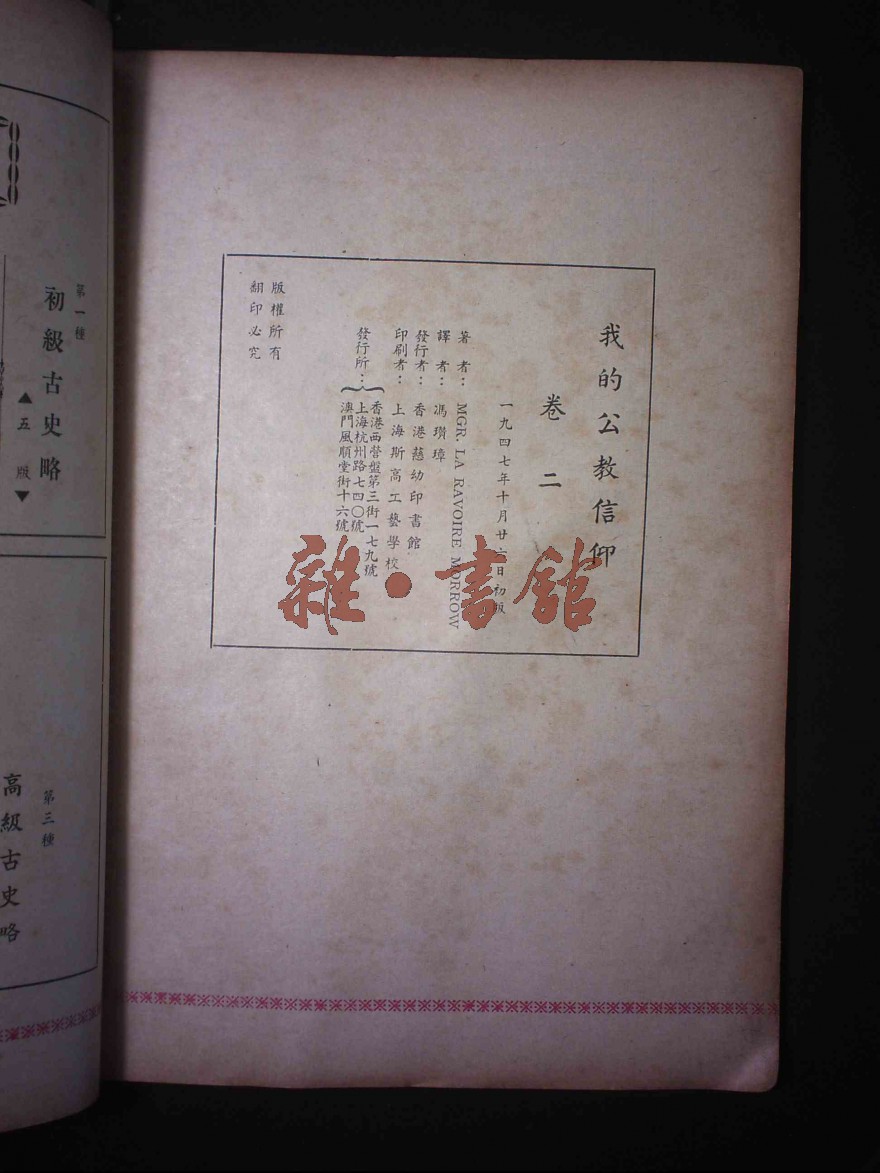 我的公教信仰
卷二
一九四七年十月廿六日初版
著者：MGR. LA RAVOIRE MORROW
譯者：馮瓚璋
發行者：香港慈幼印書館
印刷者：上海斯高工藝學校
發行所：
香港西營盤第三街一七九號
上海杭州路七四〇號
澳門風順堂街十六號
版權所有
翻印必究
第一種
初級古史略
▲五版▼
第三種
高級古史略
雜·書館